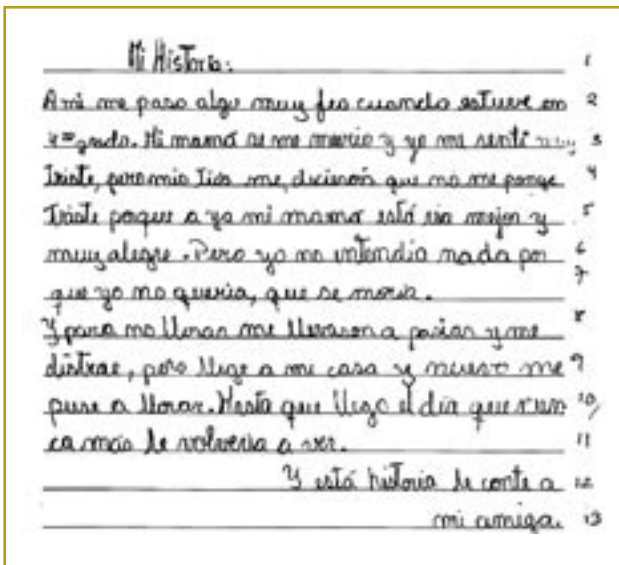 Mi Historia: 1
A mi me paso algo muy feo cuando estuve en 2
4= grado. Mi mamá se me murio y yo me sentí muy 3
triste, pero mis tios me, dicieron que no me ponga 4
triste porque a ya mi mamá está ría mejor y 5
muy alegre. Pero yo no entendia nada por 6
7
que yo no queria, que se mora.
8
Y para no llorar me llevaron a pasiar y me
distrae, pero llege a mi casa y nuevo me 9
puse a llorar. Hasta que llego el día que nun 10/
ca más le volveria a ver. 11
Y está historia le conte a 12
mi amiga. 13